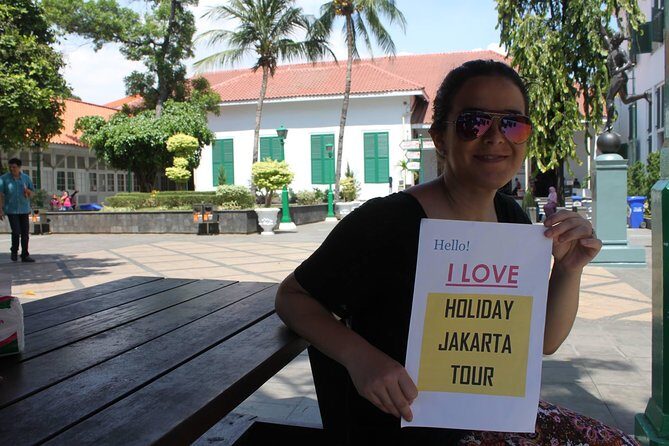 Hello!
I LOVE
HOLIDAY
JAKARTA
TOUR